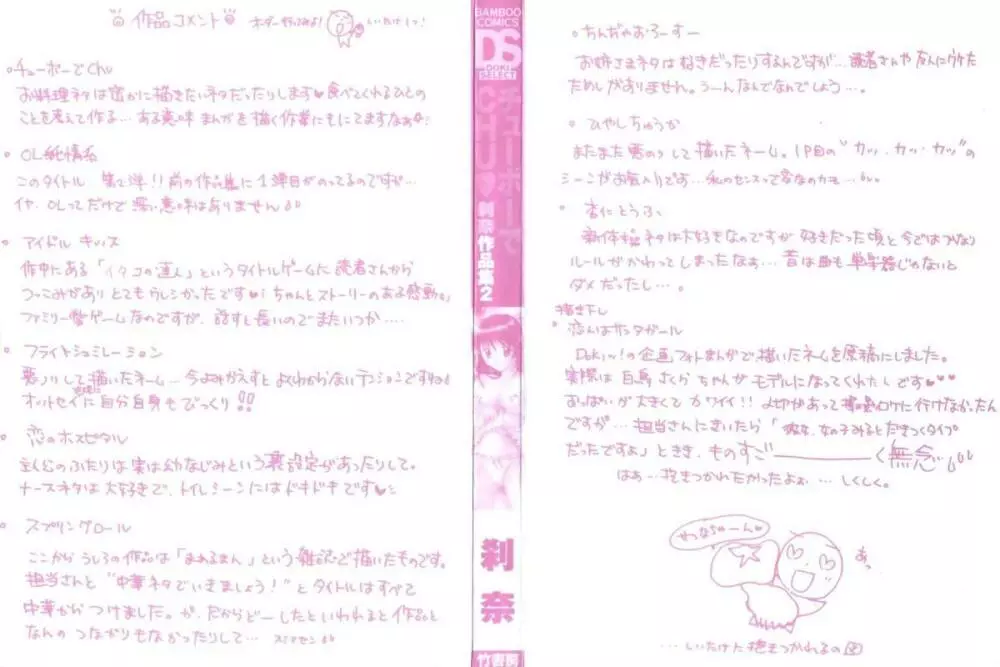 作品コメント
チューボーでChu
お料理ネタは密かに描きたいネタだったりします♥食べてくれるひとの
ことを考えて作る…ある意味まんがを描く作業にもにてますなぁ
OL純情系
このタイトル 第2弾!!前の作品集に1弾目がのってるのですが…
イヤ、OLってだけで深い意味はありません
アイドル キッス
作中にある「イタコの達人」というタイトルゲームに読者さんから
つっこみがあり とてもウレシかったです♥ ちゃんとストーリーのある感動
ファミリー型ゲームなのですが、話すと長いのでまたいつか….
フライトシュミレーション
悪ノリして描いたネーム…今よみかえすと よくわからないテンションですね
オットセイに自分自身もびっくり!!
恋のホスピタル
主人公のふたりは実は幼なじみという裏設定があったりして。
ナースネタは大好きで、トイレシーンにはドキドキです♥
スプリングロール
ここから うしろの作品は「まあるまん」という雑誌で描いたものです。
担当さんと"中華ネタでいきましょう!"と タイトルはすべて
中華からつけました。が、だからどーしたといわれると作品と
なんの つながりもなかったりして… スミマセン
BAMBOO
COMICS
DS
DOKI
SELECT
チューボーで
CHU♥
刹奈作品集2
刹奈
竹書房
ちんぢゃおろーすー
お姉さまネタはすきだったりするんですが…読者さんや友人にウケた
ためしがありません。うーんなんでなんでしょう…。
ひやしちゅうか
またまた悪のりして描いたネーム。1P目の"カッ・カッ・カッ"の
シーンがお気入りです…私のセンスって変なのカモ…
杏仁とうふ
新体操ネタは大好きなのですが 好きだった頃と今ではかなり
ルールがかわってしまったなぁ…昔は曲も単楽器じゃないと
ダメだったし…。
描き下し
恋人はサンタガール
Doki!の企画フォトまんがで描いたネームを原稿にしました。
実際は 白鳥さくら ちゃんが モデルになってくれたんです♥♥♥
おっぱいが大きくて カワイイ!! 〆切があって撮影ロケに行けなかったん
ですが…担当さんにきいたら「彼女、女の子みるとだきつくタイプ
だったですよ」ときき、ものすご────く無念
はぁ…抱きつかれたかったよぉ…しくしく。
せつなちゃーん♥
あっ
…しいたけに抱きつかれるの図